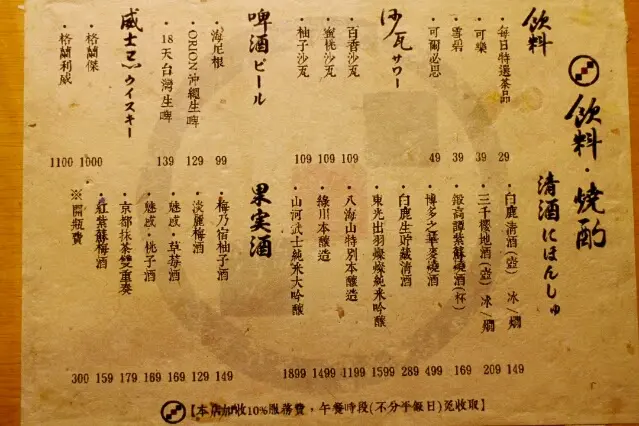 飲料・燒酌
飲料
・每日特選茶品 29
・可樂 39
・雪碧 39
・可爾必思 49
沙瓦サワー
・百香沙瓦 109
・蜜桃沙瓦 109
・柚子沙瓦 109
啤酒ビール
・海尼根 99
・ORION沖繩生啤 129
・18天台灣生啤 139
威士忌ウイスキー
・格蘭傑 1000
・格蘭利威 1100
清酒にほんしゅ
・白鹿清酒(壺) 冰/燗 149
・三千櫻地酒(壺) 冰/燗 209
・鍛高譚紫蘇燒酒(杯) 169
・博多之華麥燒酒 499
・白鹿生貯藏清酒 289
・東光出羽燦燦純米吟釀 1599
・八海山特別本釀造 1199
・綠川本釀造 1499
・山河武士純米大吟釀 1899
果実酒
・梅乃宿柚子酒 149
・淡麗梅酒 129
・魅惑・草莓酒 169
・魅惑・桃子酒 169
・京都抹茶雙重奏 179
・紅紫蘇梅酒 159
※開瓶費 300
【本店加收10%服務費，午餐時段(不分平假日)免收取】